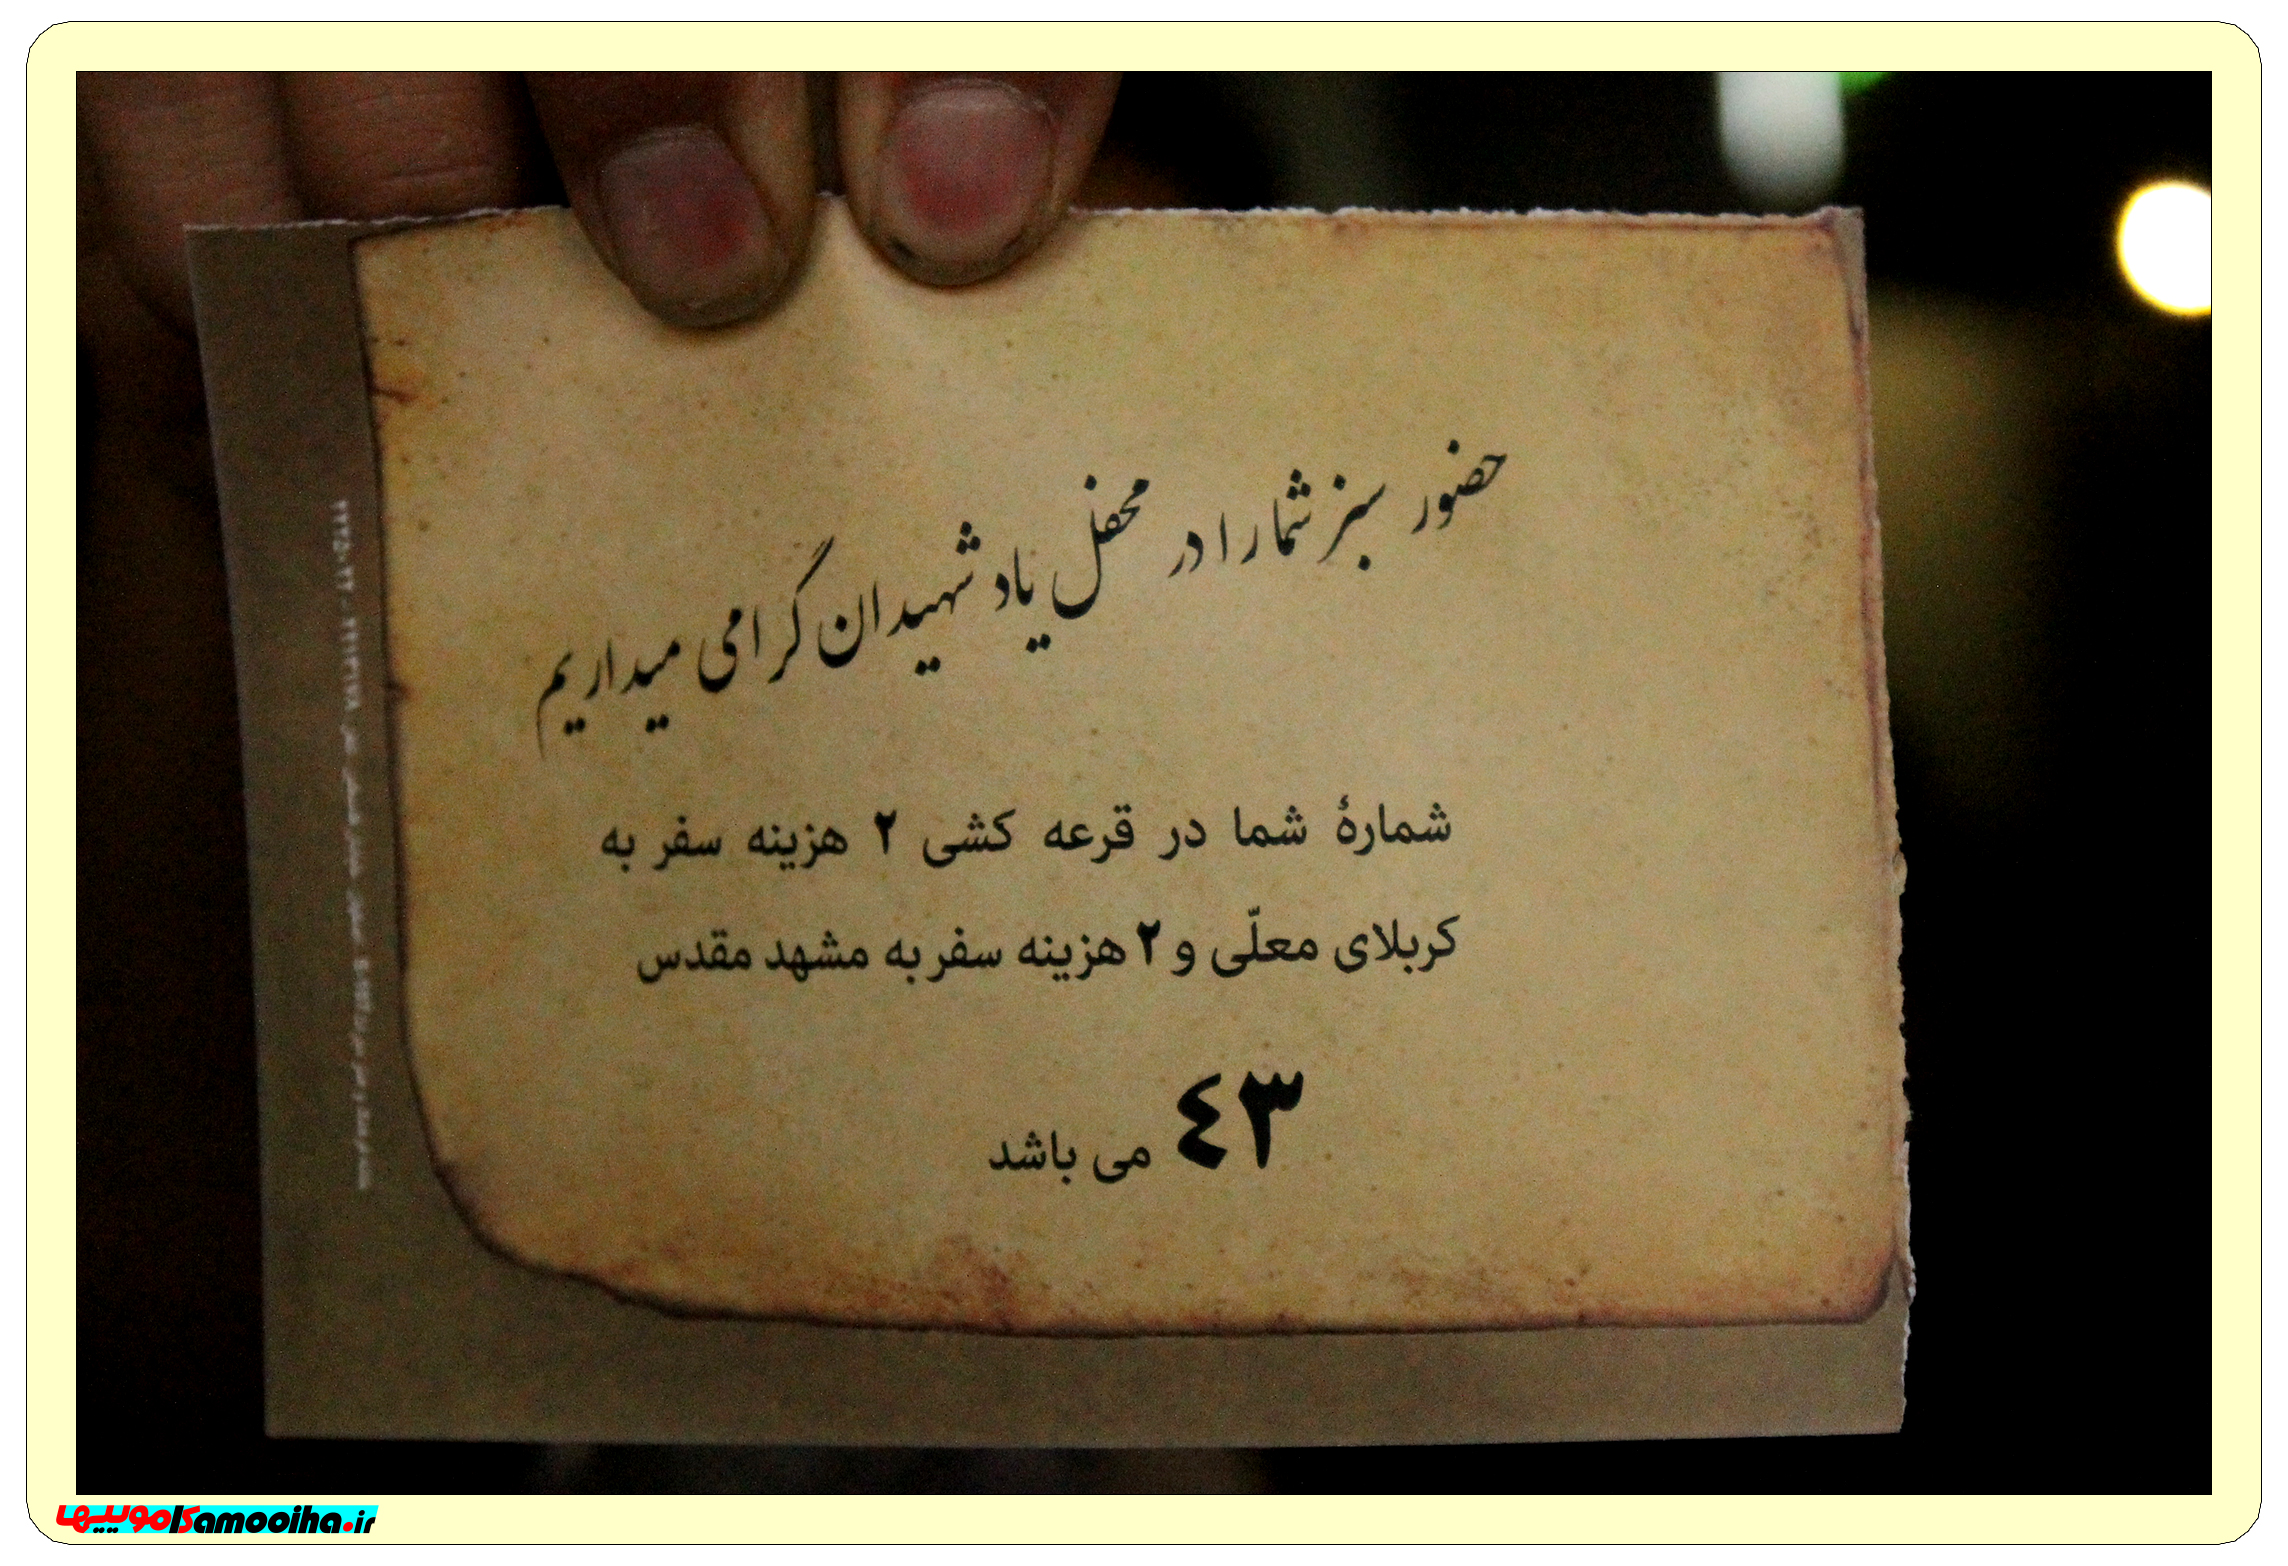 حضور سبز شما را در محفل یاد شهیدان گرامی میداریم
شمارهٔ شما در قرعه کشی ۲ هزینه سفر به
کربلای معلّی و ۲ هزینه سفر به مشهد مقدس
٤٣ می باشد
کاموییها Kamooiha.ir